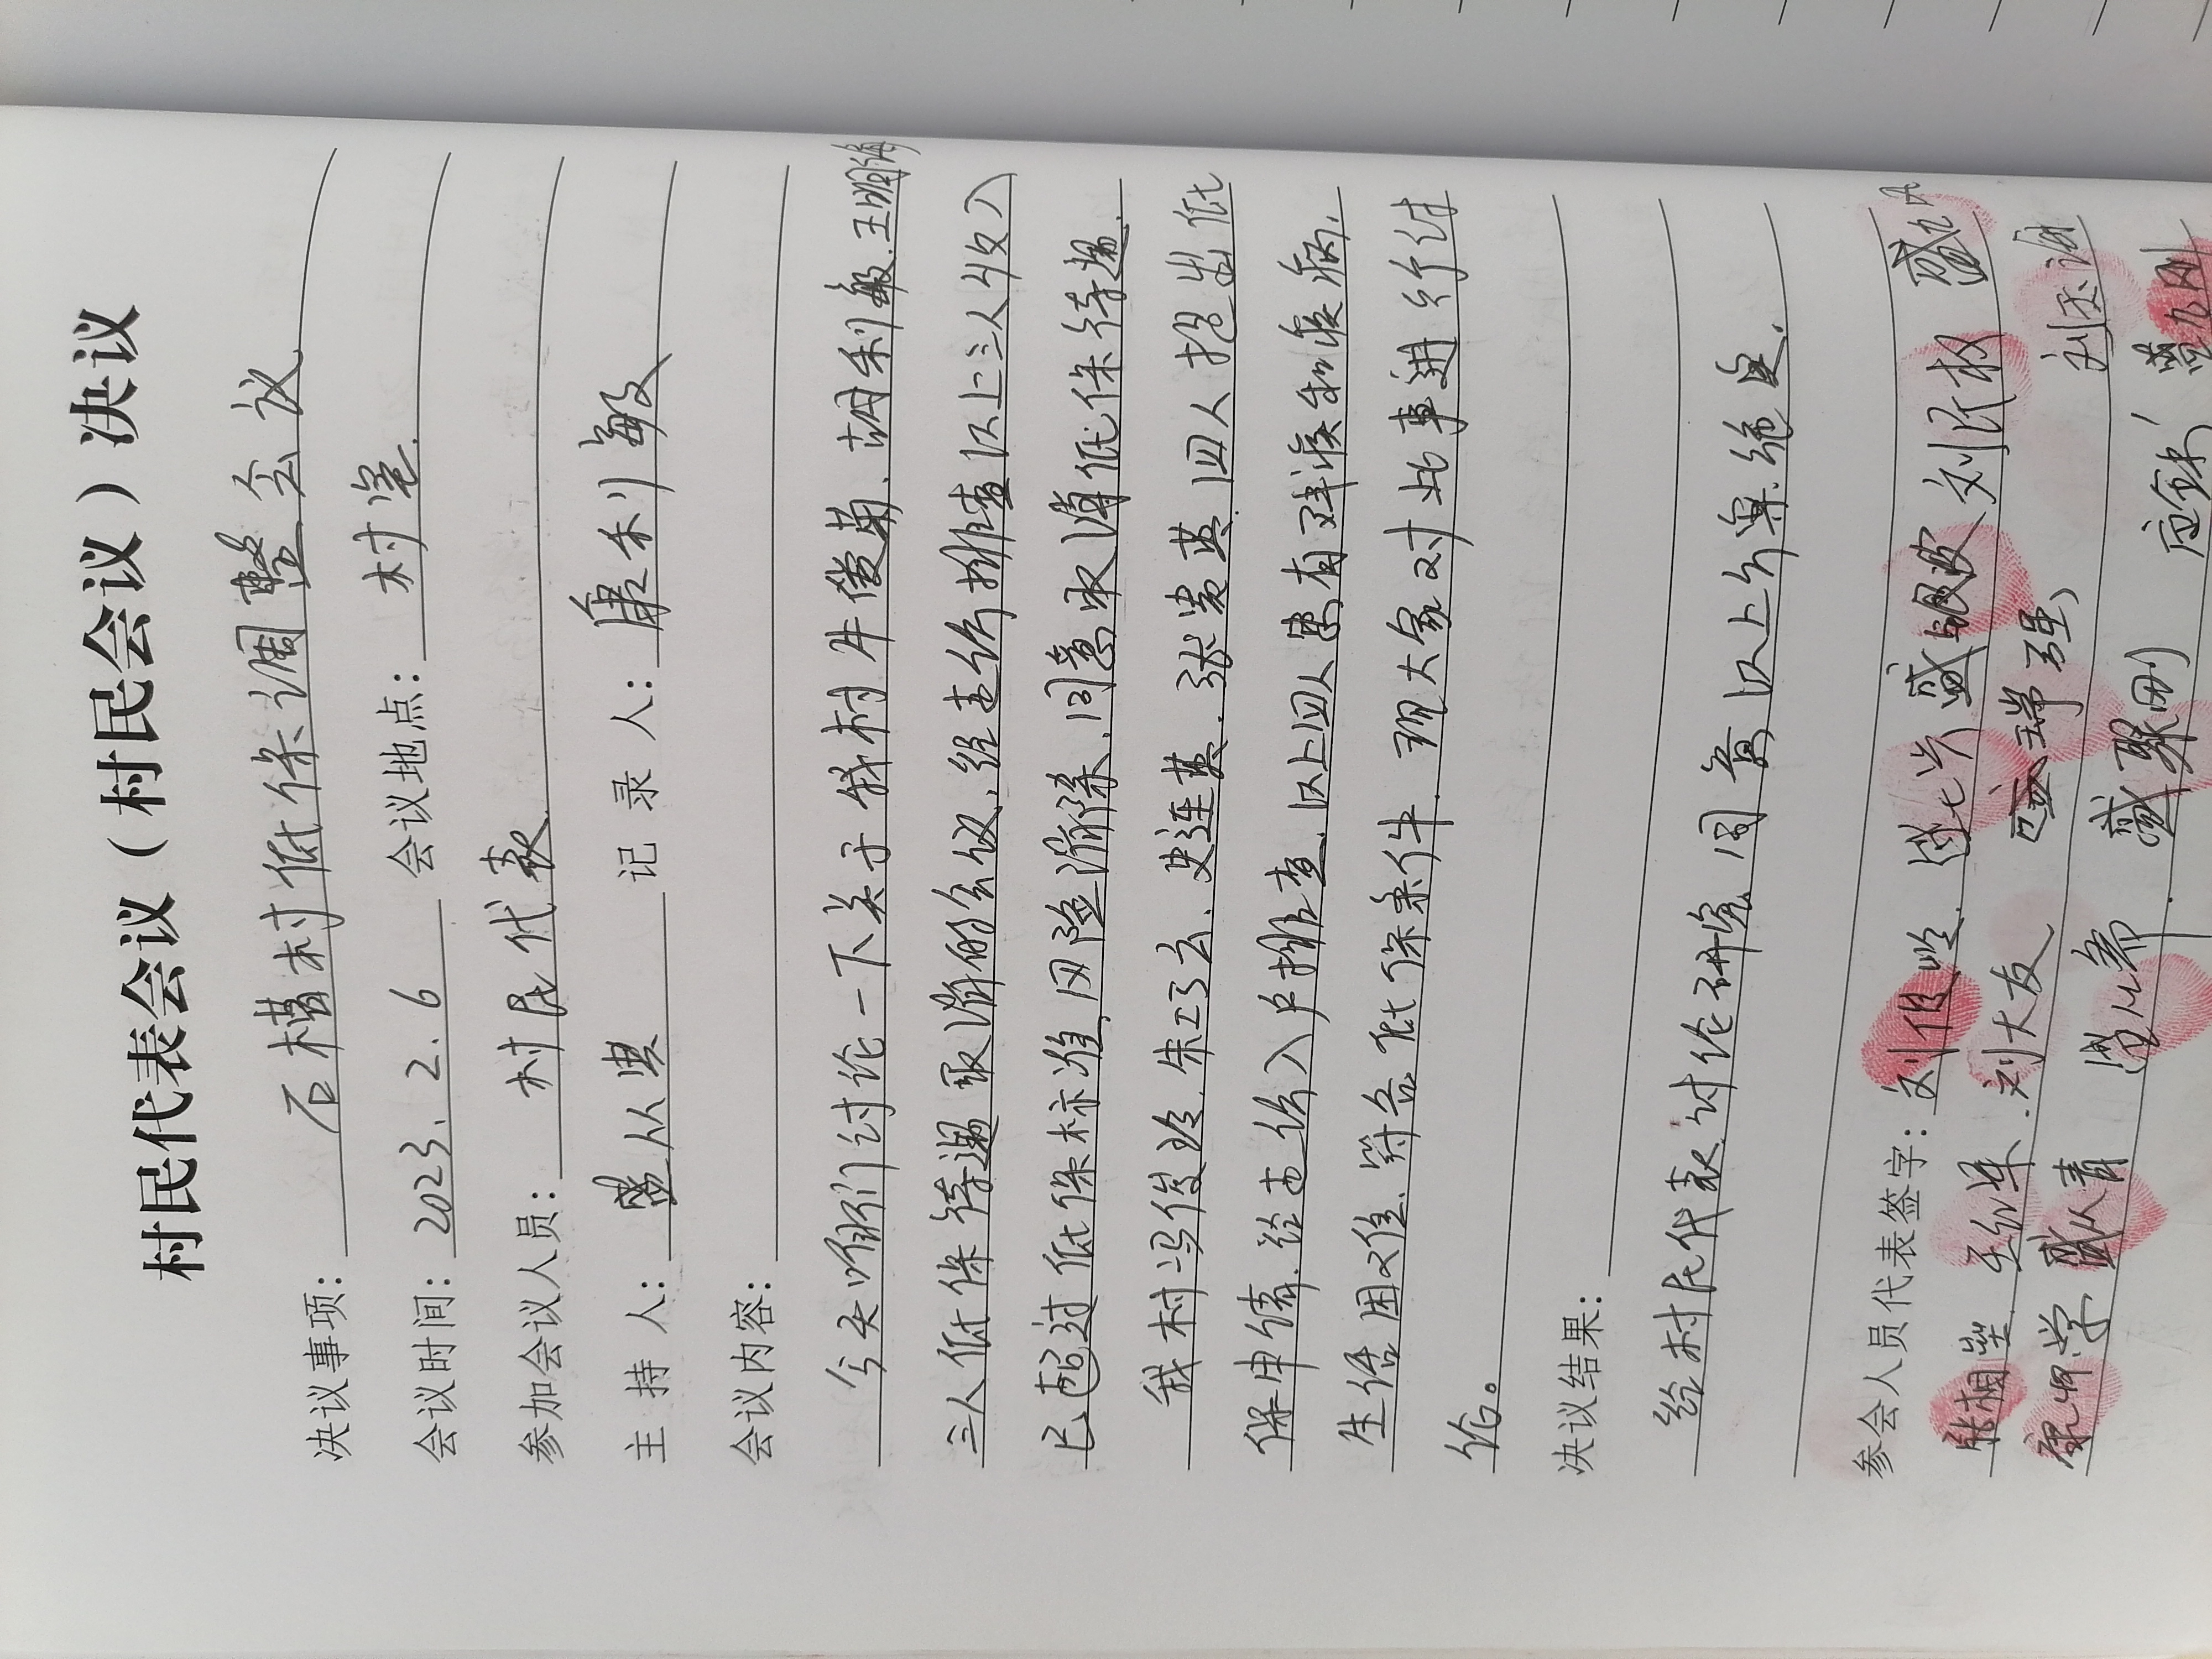 村民代表会议（村民会议）决议
决议事项： 石槽村低保调整会议
会议时间： 2023.2.6 会议地点： 村室.
参加会议人员： 村民代表.
主持人： 盛从典 记录人： 康利敏
会议内容：
今天咱们讨论一下关于我村牛俊菊、胡利敏.王明
三人低保待遇取消的会议,经走访排查以上三人收入
已超过低保标准,风险消除.同意取消低保待遇.
我村冯俊玲.朱巧云.史连英.张贵英.四人提出低
保申请.经走访入户排查.以上四人患有残疾和疾病.
生活困难.符合低保条件.现大家对此事进行讨
论。
决议结果：
经村民代表讨论研究,同意以上公议结果.
参会人员代表签字： 盛银安、刘所权
刘大友 强、刘
康 学 盛从青 盛聚刚